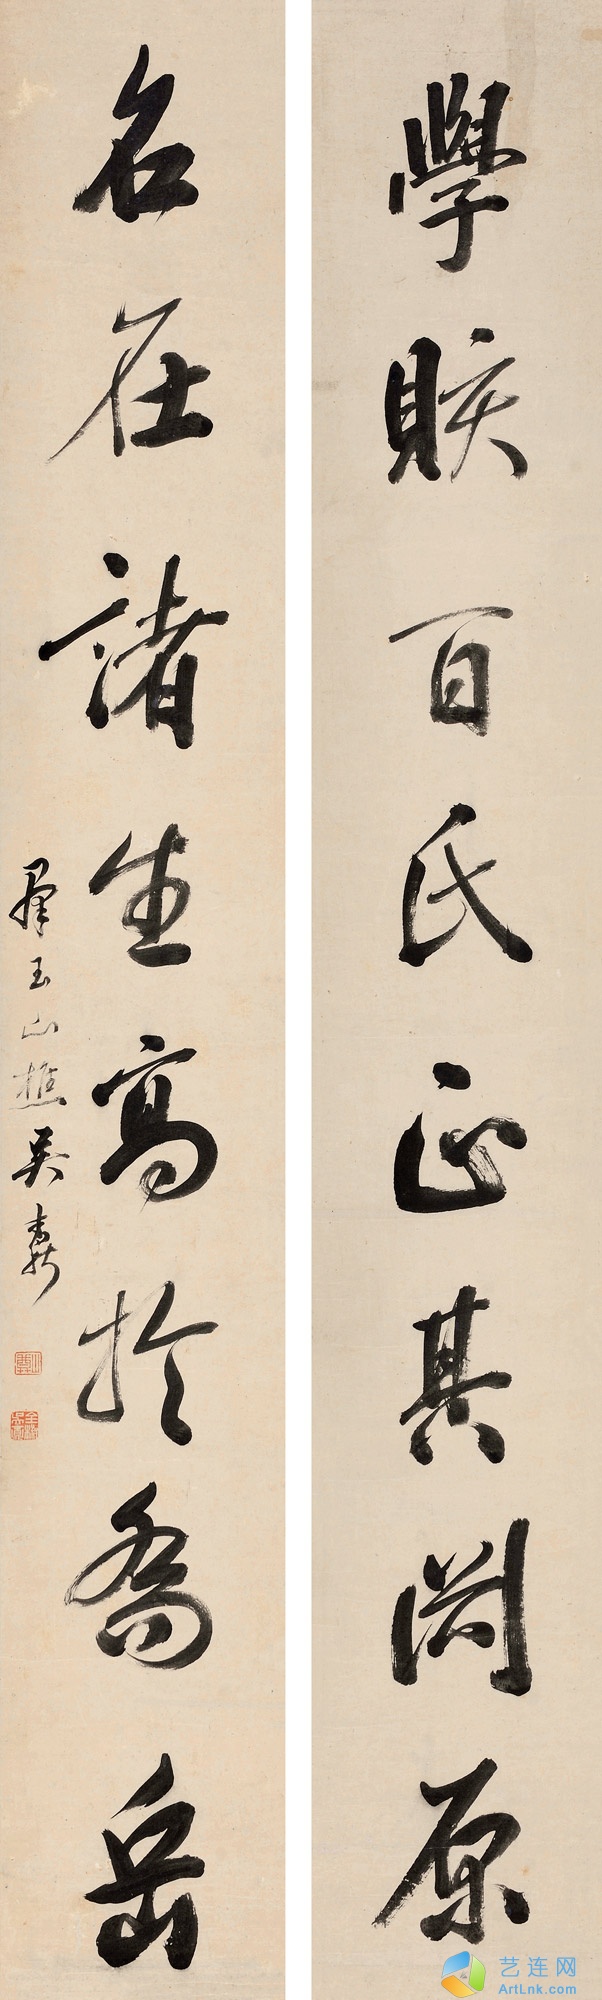 學賅百氏正其淵原
名在諸生高於喬岳
羣玉山樵吳鼒
艺连网
ArtLnk.com